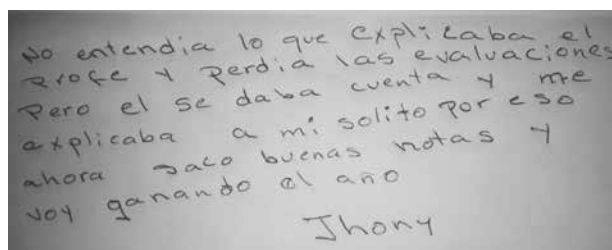 No entendia lo que explicaba el
profe y perdia las evaluaciones
Pero el se daba cuenta y me
explicaba a mi solito por eso
ahora saco buenas notas y
voy ganando el año
Jhony